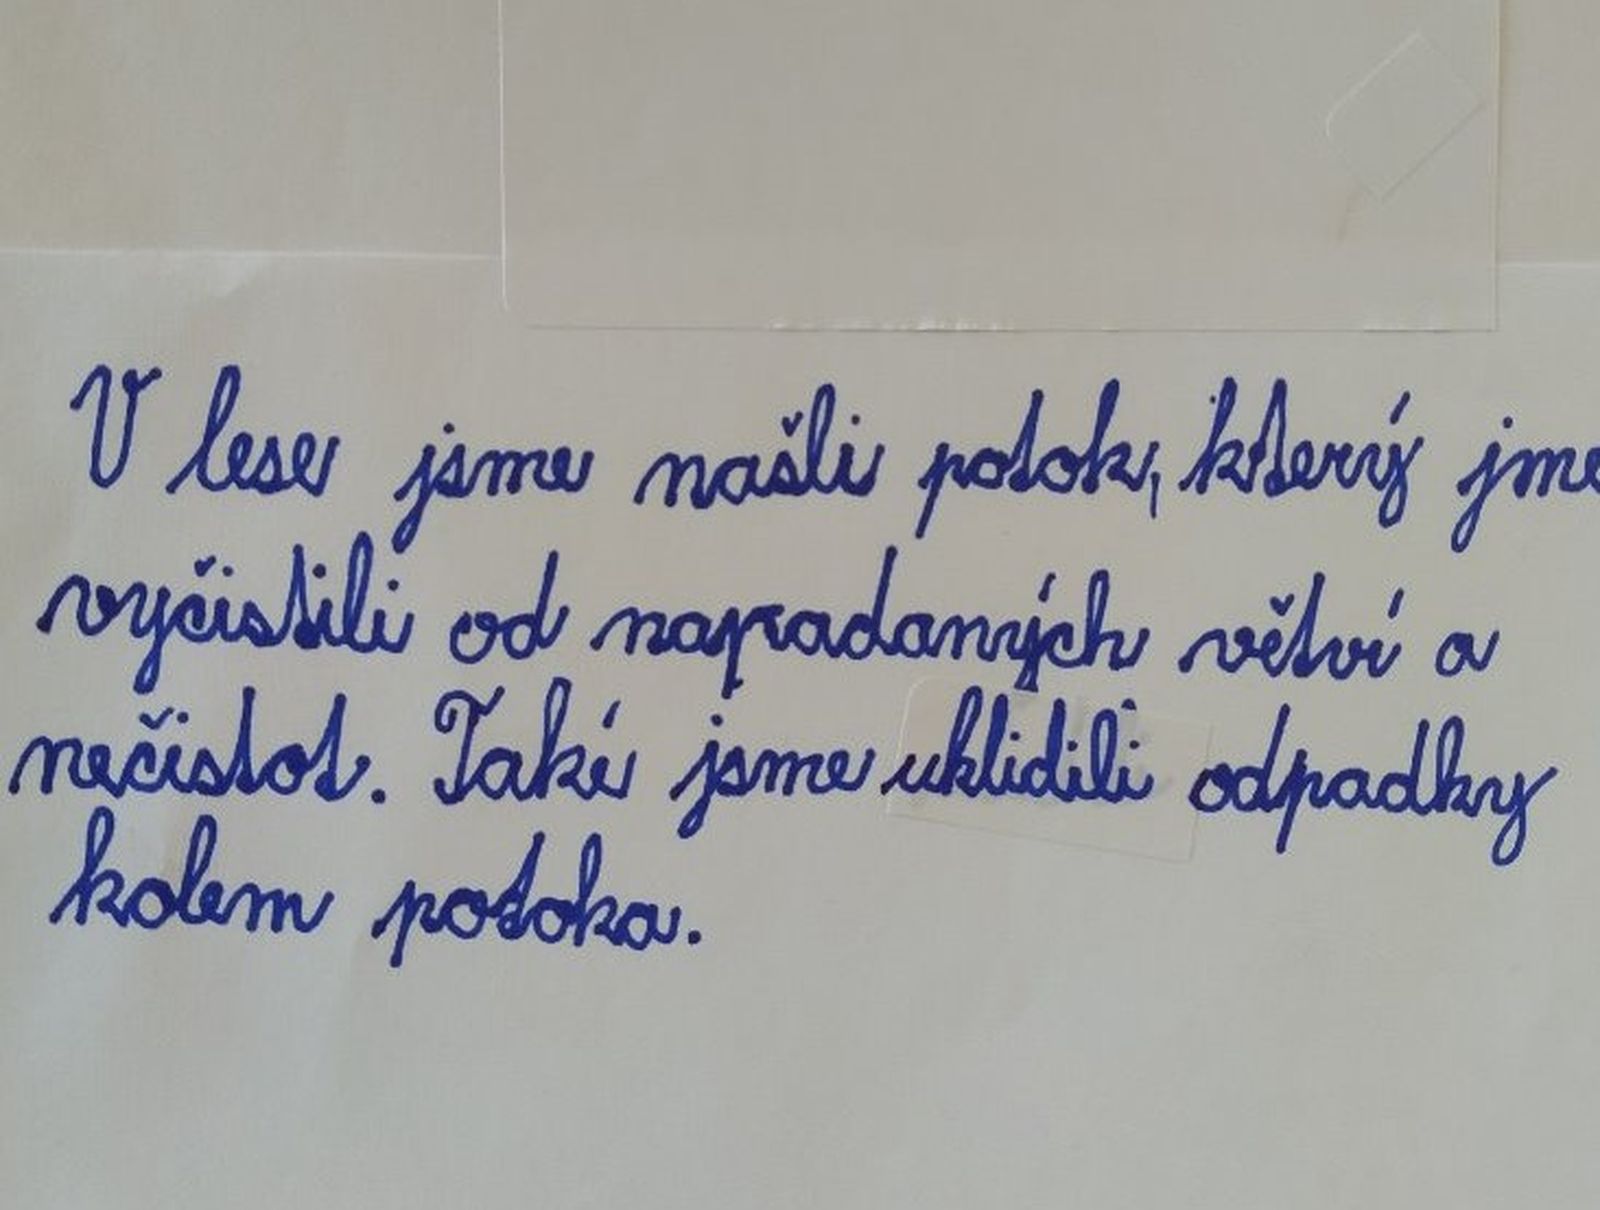 V lese jsme našli potok, který jme
vyčistili od napadaných větví a
nečistot. Také jsme uklidili odpadky
kolem potoka.